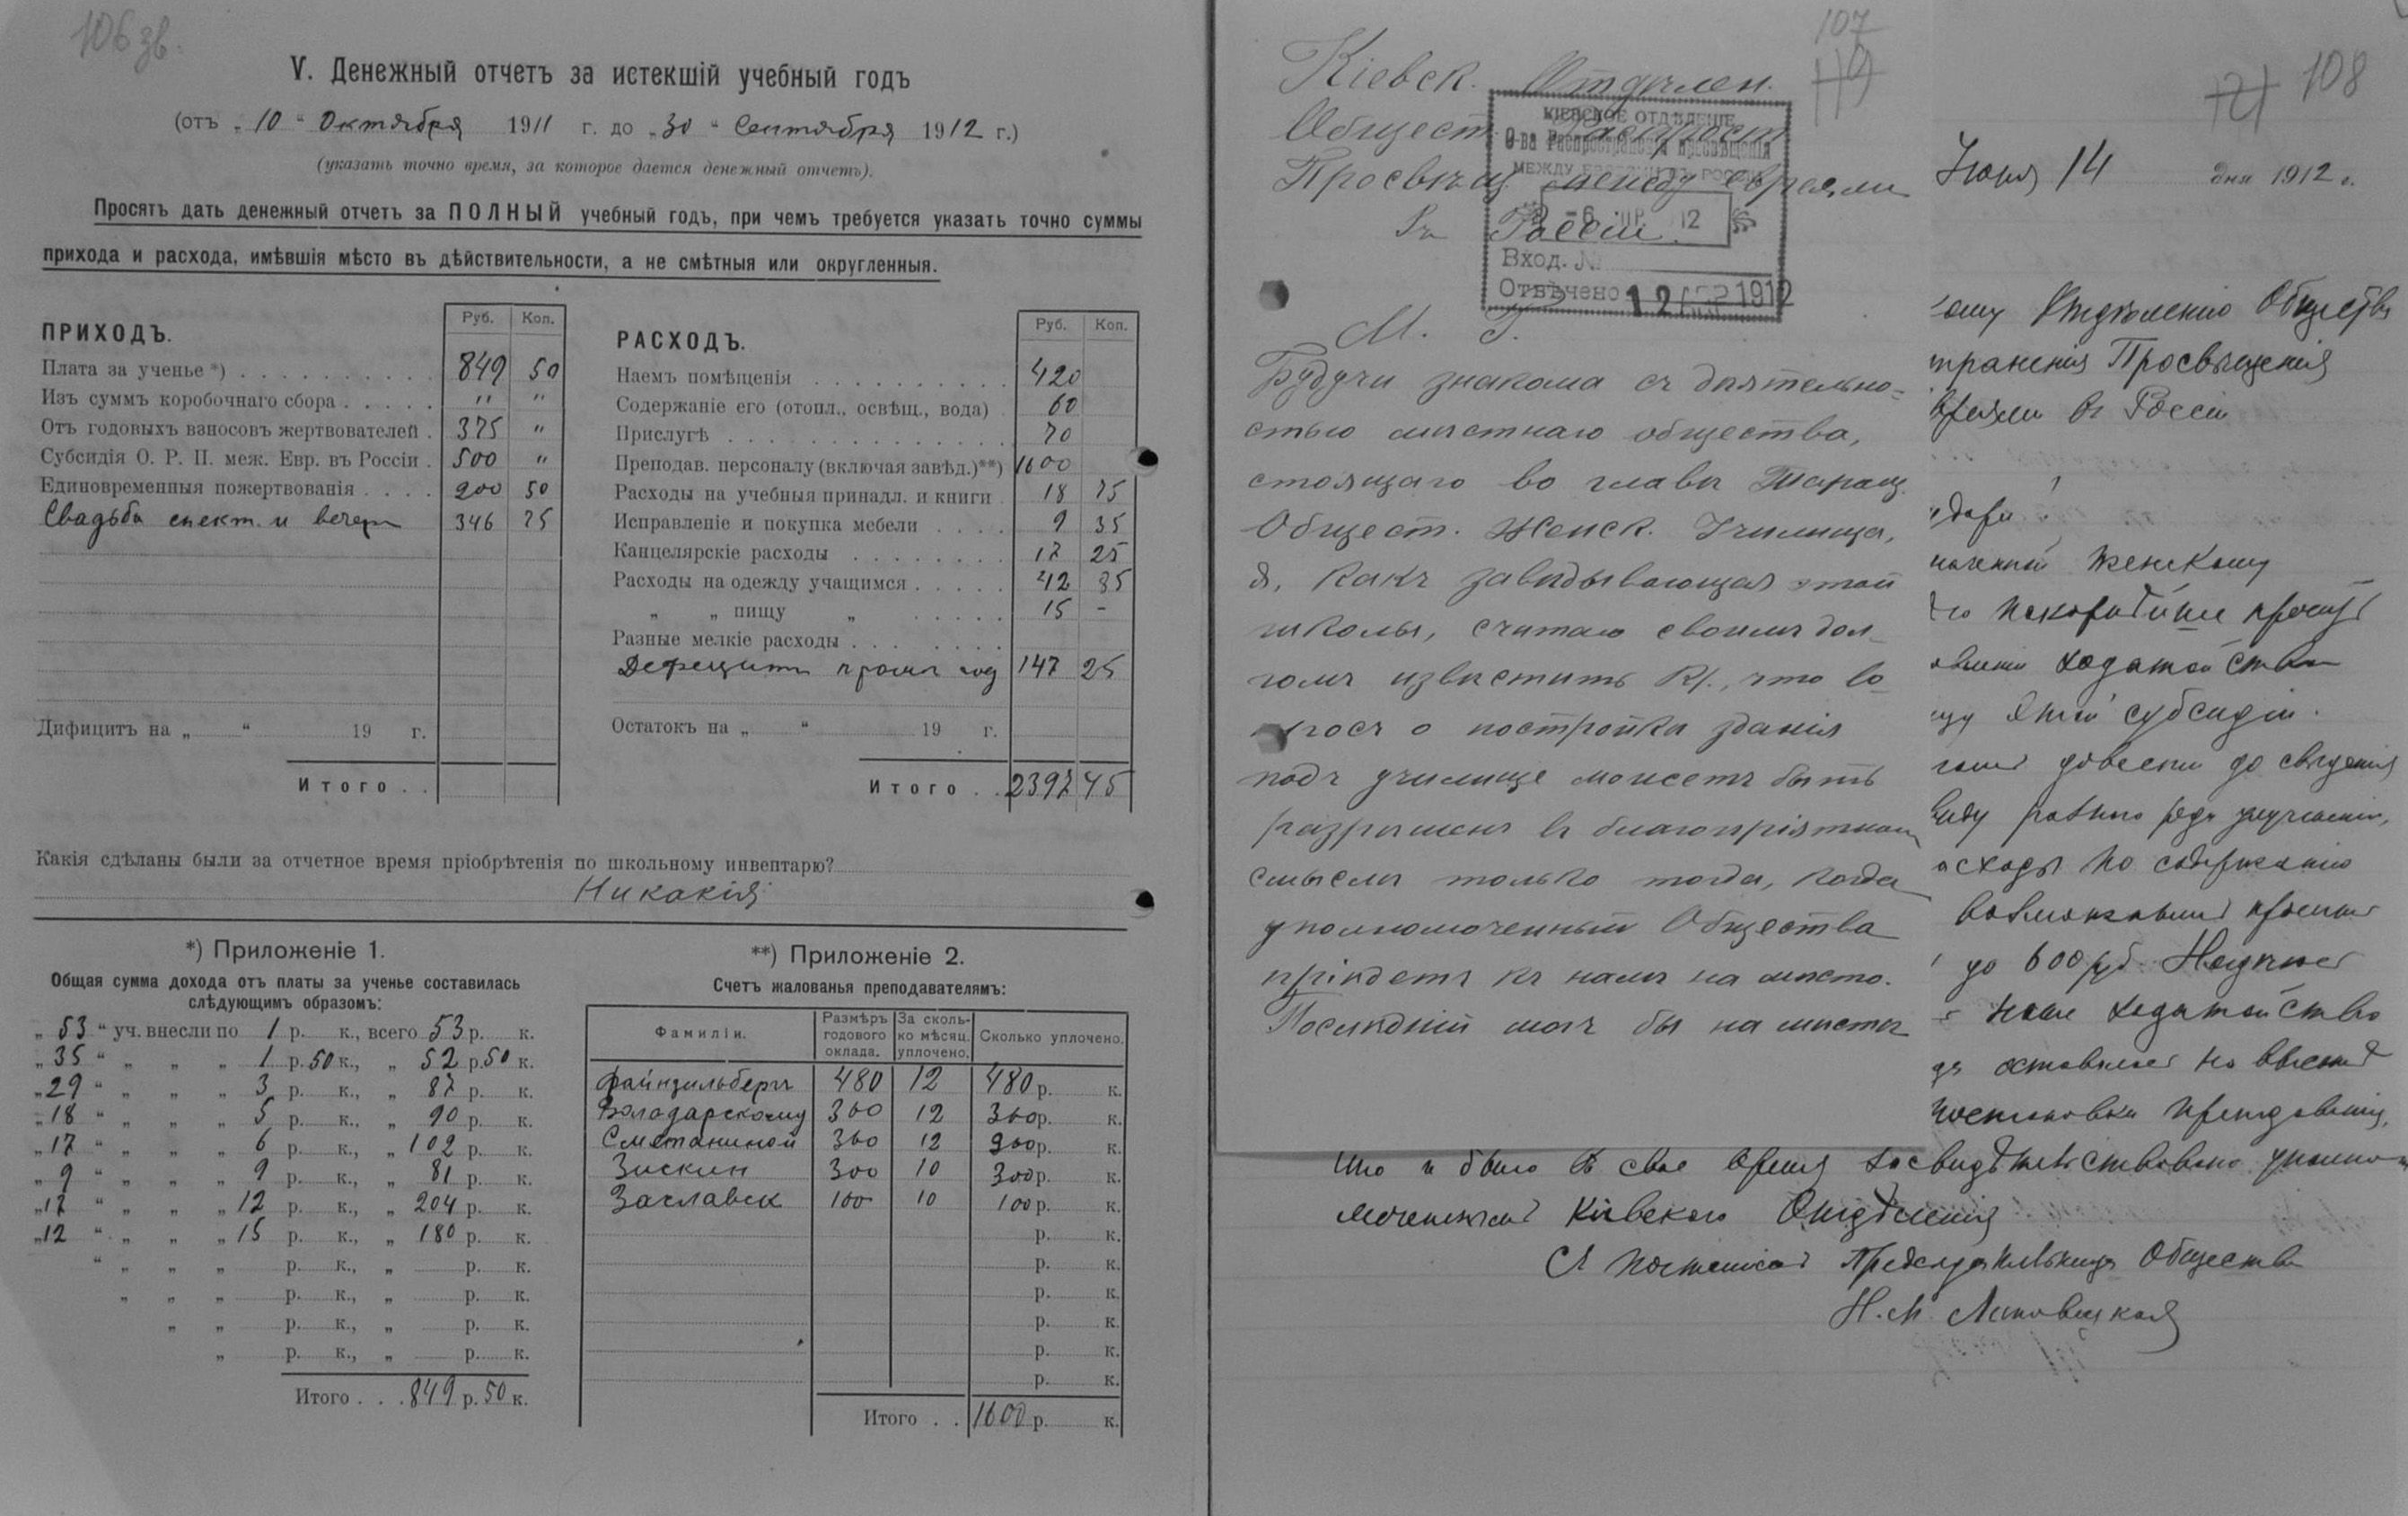 106 зв.
V. Денежный отчетъ за истекшій учебный годъ
(отъ „10“ Октября 1911 г. до „30“ Сентября 1912 г.)
(указать точно время, за которое дается денежный отчетъ).
Просятъ дать денежный отчетъ за ПОЛНЫЙ учебный годъ, при чемъ требуется указать точно суммы
прихода и расхода, имѣвшія мѣсто въ дѣйствительности, а не смѣтныя или округленныя.
ПРИХОДЪ. Руб. Коп.
Плата за ученье *) 849 50
Изъ суммъ коробочнаго сбора „ „
Отъ годовыхъ взносовъ жертвователей 375 „
Субсидія О. Р. П. меж. Евр. въ Россіи 500 „
Единовременныя пожертвованія 200 50
Свадьбы спект. и вечер 346 25
Дифицитъ на „ “ 19 г.
Итого . .
РАСХОДЪ. Руб. Коп.
Наемъ помѣщенія 420
Содержаніе его (отопл., освѣщ., вода) 60
Прислугѣ 70
Преподав. персоналу (включая завѣд.)**) 1600
Расходы на учебныя принадл. и книги 18 75
Исправленіе и покупка мебели 9 35
Канцелярскіе расходы 17 25
Расходы на одежду учащимся 42 35
„ „ пищу „ 15 -
Разные мелкіе расходы
Дефецитъ прошл год 147 25
Остатокъ на „ “ 19 г.
Итого . . 2397 45
Какія сдѣланы были за отчетное время пріобрѣтенія по школьному инвентарю?
Никакія
*) Приложеніе 1.
Общая сумма дохода отъ платы за ученье составилась
слѣдующимъ образомъ:
„ 53 “ уч. внесли по 1 р. к., всего 53 р. к.
„ 35 “ „ „ „ 1 р. 50 к., „ 52 р. 50 к.
„ 29 “ „ „ „ 3 р. к., „ 87 р. к.
„ 18 “ „ „ „ 5 р. к., „ 90 р. к.
„ 17 “ „ „ „ 6 р. к., „ 102 р. к.
„ 9 “ „ „ „ 9 р. к., „ 81 р. к.
„ 17 “ „ „ „ 12 р. к., „ 204 р. к.
„ 12 “ „ „ „ 15 р. к., „ 180 р. к.
“ „ „ „ р. к., „ р. к.
„ „ „ р. к., „ р. к.
„ „ р. к., „ р. к.
„ р. к., „ р. к.
Итого . . . 849 р. 50 к.
**) Приложеніе 2.
Счетъ жалованья преподавателямъ:
Фамиліи. Размѣръ годового оклада. За сколько мѣсяц. уплочено. Сколько уплочено.
Файнзильбергъ 480 12 480 р. к.
Володарскому 360 12 360 р. к.
Сметаниной 360 12 360 р. к.
Зискин 300 10 300 р. к.
Заславск 100 10 100 р. к.
р. к.
р. к.
р. к.
р. к.
р. к.
р. к.
Итого . . 1600 р. к.
107
119
Кіевск. Отдѣлен.
Общест. Распрост.
Просвѣщ. между евреями
въ Россіи.
КІЕВСКОЕ ОТДѢЛЕНІЕ
О-ва Распространенія просвѣщенія
МЕЖДУ ЕВРЕЯМИ ВЪ РОССІИ
-6 АПР 12
Вход. №
Отвѣчено 12 АПР 1912
М. Г.
Будучи знакома съ дѣятельно=
стью мѣстнаго общества,
стоящаго во главѣ Таращ.
Общест. Женск. Училища,
я, какъ завѣдывающая этой
школы, считаю своимъ дол_
гомъ извѣстить Васъ, что во_
просъ о постройкѣ зданія
подъ училище можетъ быть
разрѣшенъ въ благопріятном
смыслѣ только тогда, когда
уполномоченный Общества
пріѣдетъ къ намъ на мѣсто.
Послѣдній могъ бы на мѣстѣ
121
108
Іюня 14 дня 1912 г.
ому Отдѣленію Общества
транения Просвѣщенія
вреями въ Россіи
дари!
женскому
покорнѣйше проситъ
ходатайство
этой субсидіи.
довести до свѣдѣнія
виду разнаго рода улучшеній,
асходы по содержанію
до 600 руб. Надѣюсь
наше ходатайство
оставаясь на высотѣ
постановки преподаванія,
что и было въ свое время засвидѣтельствовано уполно
моченнымъ Кіевскаго Отдѣленія
Съ почтеніемъ Предсѣдательница Общества
Н. М. Липовецкая